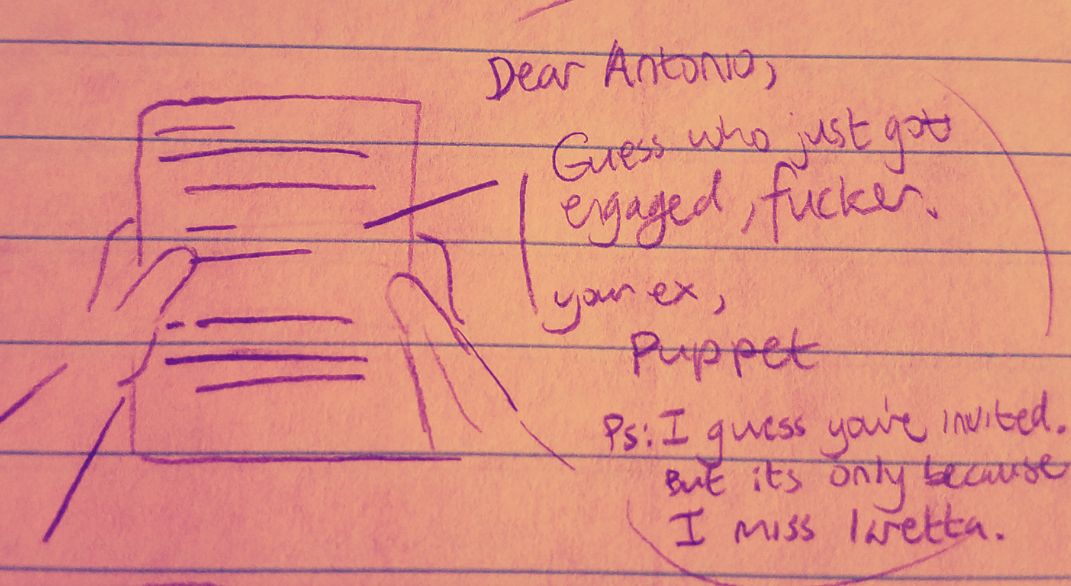 Dear Antonio,
Guess who just got
engaged, fucker.
your ex,
Puppet
Ps: I guess you're invited.
But its only because
I miss loretta.